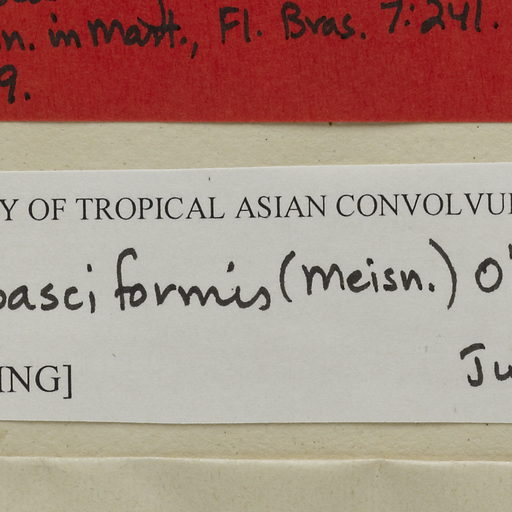 n. in Mart., Fl. Bras. 7: 241.
9.
Y OF TROPICAL ASIAN CONVOLVU
basciformis (Meisn.) O'
ING]
Ju